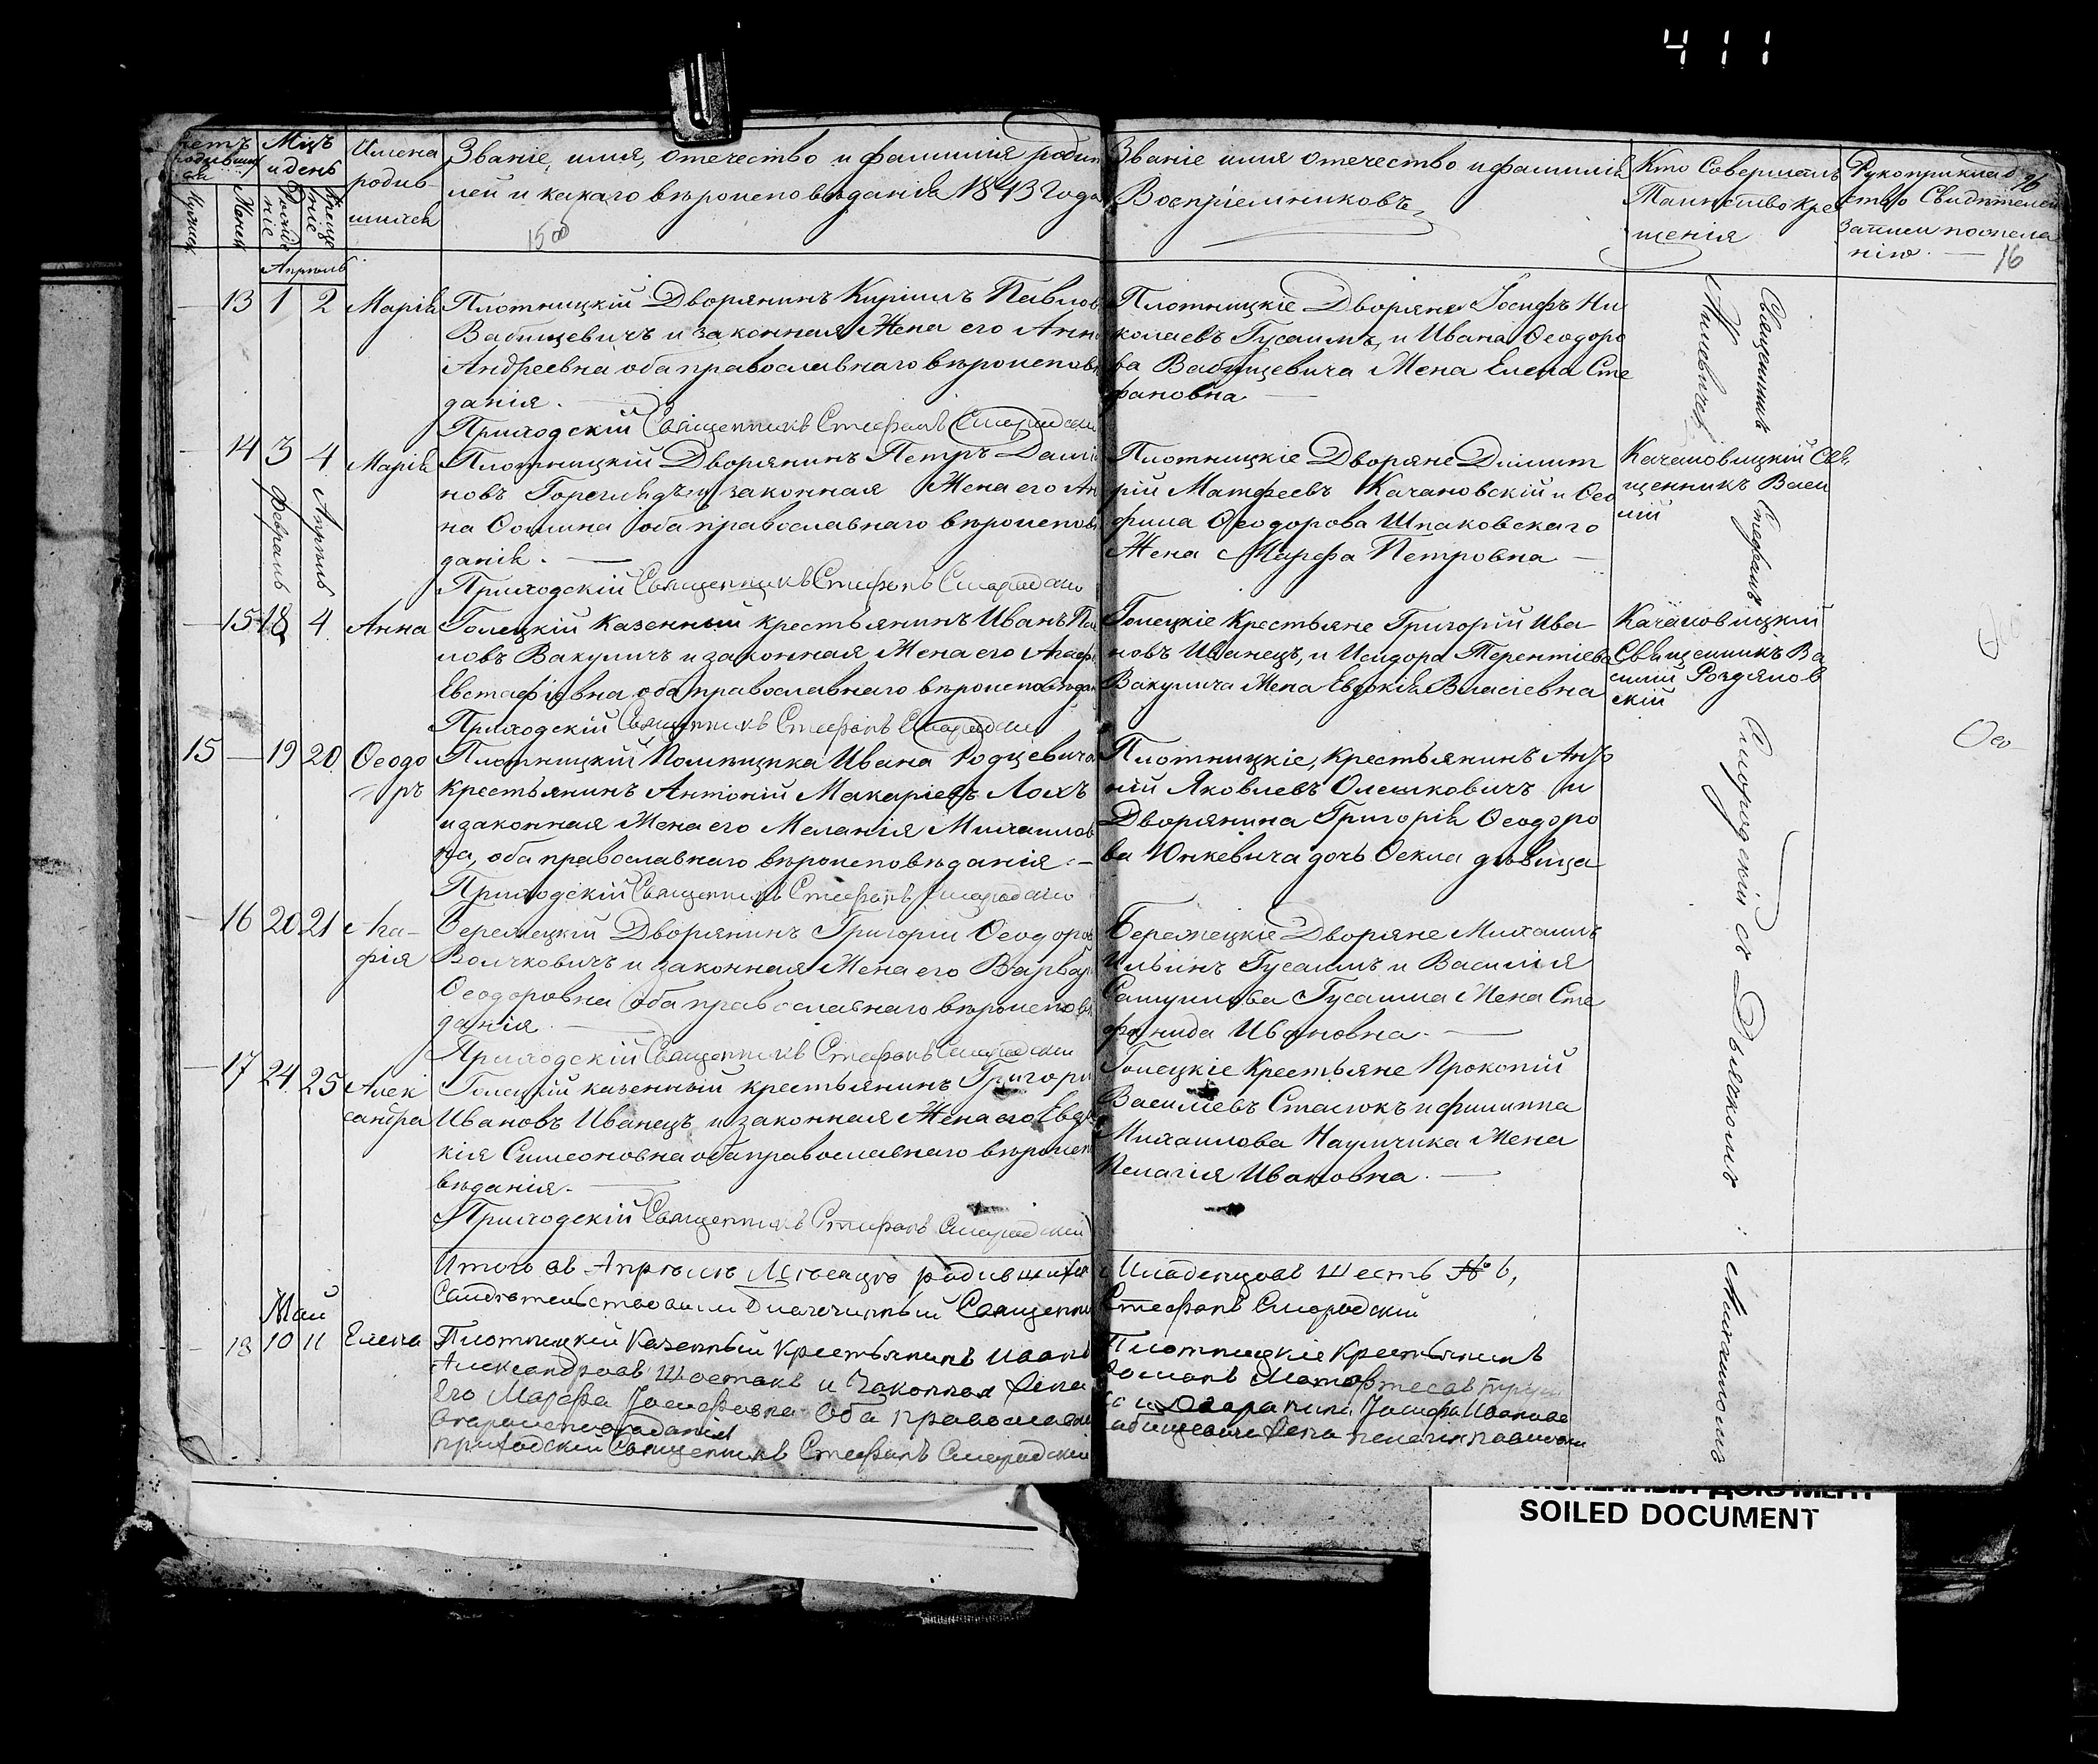 411
Счетъ родившихся
Мужск
Женск
Мцъ и день
Рожденіе
Крещеніе
Имена родив
шихся
Званіе, имя, отечество и фамилія родит
лей и какаго вѣроисповѣданія 1843 Года
Званіе имя отечество и фамилія
Воспріемниковъ
Кто Совершалъ
Таинство Кре
щенія
Рукоприклад
ство Свидѣтелей
Записи пожела
нію.
16
16
Апрѣль
13 1 2 Марія
Плотницкій Дворянинъ Кирилъ Павлов
Вабищевичъ и законная Жена его Анн
Андреевна оба православнаго вѣроисповѣ
данія.
Приходскій Священникъ Стефанъ Смородскій
Плотницкіе Дворяне Іосифъ Ни
колаевъ Гусаимъ, и Ивана Ѳеодоро
ва Вабищевича Жена Елена Сте
фановна
14 3 4 Марія
Февраль Апрѣль
Плотницкій Дворянинъ Петръ Дами
новъ и законная Жена его Ан
на оба православнаго вѣроисповѣ
данія.
Приходскій Священникъ Стефанъ Смородскій
Плотницкіе Дворяне Димит
рій Матфеевъ Качановскій и Ѳео
фила Ѳеодорова Шпаковскаго
Жена Марфа Петровна
Качановицкій Свя
щенникъ Васи
лій
15 18 4 Анна
Голецкій Казенный крестьянинъ Иванъ Пав
ловъ Вакуличъ и законная Жена его Агаф
Евстафіевна оба православнаго вѣроисповѣдан
Приходскій Священникъ Стефанъ Смородскій
Голецкіе Крестьяне Григорій Ива
новъ Иванецъ, и Исидора Терентіева
Вакулича Жена Евдокія Власіевна
Качановицкій
Священникъ Ва
силій
скій
15 19 20 Ѳеодо
ръ
Плотницкій Помѣщика Ивана Родзевича
Крестьянинъ Антоній Макаріевъ Лохъ
и законная Жена его Меланія Михаилов
на, оба православнаго вѣроисповѣданія.
Приходскій Священникъ Стефанъ Смородскій
Плотницкіе, крестьянинъ Анто
ній Яковлевъ Олешковичъ и
Дворянина Григорія Ѳеодоро
ва Юнкевича дочь Ѳекла дѣвица
Ѳео
16 20 21 Ага-
фія
Бережецкій Дворянинъ Григорій Ѳеодоров
Волчковичъ и законная Жена его Варвар
Ѳеодоровна оба православнаго вѣроисповѣ
данія.
Приходскій Священникъ Стефанъ Смородскій
Бережецкіе Дворяне Михаилъ
Ильинъ Гусаимъ и Василія
Самуилова Гусаима Жена Сте
фанида Ивановна.
17 24 25 Алек
сандра
Голецкій казенный крестьянинъ Григори
Ивановъ Иванецъ и законная Жена его Евдо
кія Симеоновна оба православнаго вѣроиспо
вѣданія.
Приходскій Священникъ Стефанъ Смородскій
Голецкіе Крестьяне Прокопій
Василіевъ Стасюкъ и филиппа
Михаилова Наумчика Жена
Пелагія Ивановна.
Священникъ Стефанъ Смородскій съ Дьячкомъ
Итого въ Апрѣлѣ Мѣсяцѣ родившихся
Младенцовъ шесть № 6,
Свидѣтельствовалъ Благочинный Священни
Стефанъ Смородскій
Май
18 10 11 Елена
Плотницкій Казенный Крестьянинъ Иванъ
Александровъ Шостакъ и Законная Жена
Его Марфа Іосифовна Оба православна
вѣроисповѣданія
приходскій Священникъ Стефанъ Смородскій
Плотницкіе Крестьянинъ
Іосифа Иванова
абищевича Жена
НЫЙ ДОКУМЕНТ
SOILED DOCUMENT